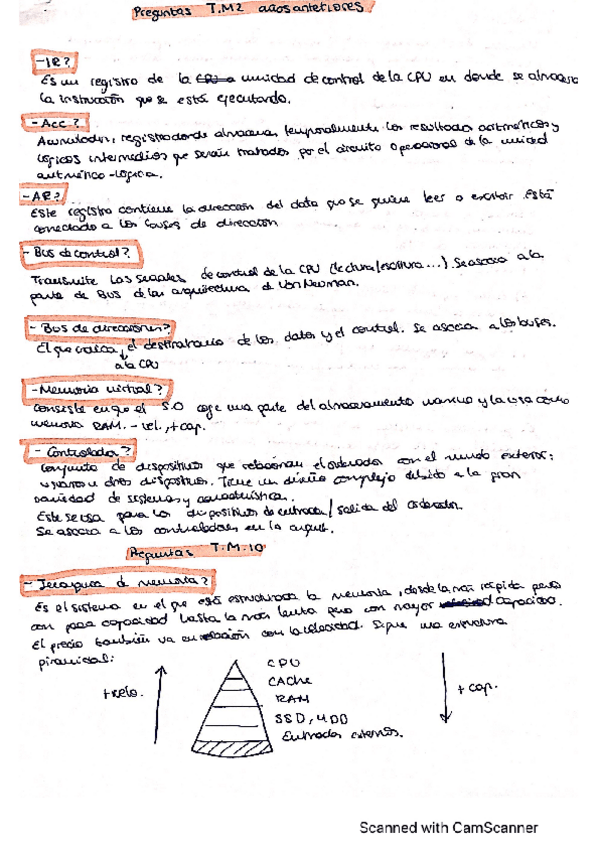 Preguntas T.M2 años anteriores
- IR?
Es un registro de la CPU a unidad de control de la CPU en donde se almacena
la instrucción que se está ejecutando.
- Acc?
Acumulador, registro donde almacena temporalmente los resultados aritméticos y
lógicos intermedios que serán tratados por el circuito operacional de la unidad
aritmético-lógica.
- AR?
Este registro contiene la dirección del dato que se quiere leer o escribir. Está
conectado a los buses de dirección
- Bus de control?
Transmite las señales de control de la CPU (lectura/escritura...). Se asocia a la
parte de Bus de la arquitectura de Von Neuman.
- Bus de direcciones?
El que indica el destinatario de los datos y el control. Se asocia a los buses.
a la CPU
- Memoria virtual?
Consiste en que el S.O coge una parte del almacenamiento masivo y la usa como
memoria RAM. - vel., + cap.
- Controlador?
Conjunto de dispositivos que relacionan el ordenador con el mundo exterior:
usuarios u otros dispositivos. Tiene un diseño complejo debido a la gran
variedad de sistemas y características.
Este se usa para los dispositivos de entrada / salida del ordenador.
Se asocia a los controladores en la arquit.
Preguntas T.M.10
- Jerarquía de memoria?
Es el sistema en el que está estructurada la memoria, desde la más rápida pero
con poca capacidad hasta la más lenta pero con mayor capacidad.
El precio también va en relación con la velocidad. Sigue una estructura
piramidal:
+ velo.
CPU
CAche
RAM
SSD, HDD
Entradas externas.
+ cap.
Scanned with CamScanner